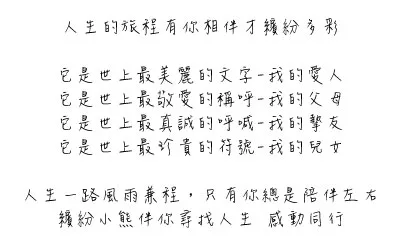 人生的旅程有你相伴才繽紛多彩
它是世上最美麗的文字-我的愛人
它是世上最敬愛的稱呼-我的父母
它是世上最真誠的呼喊-我的摯友
它是世上最珍貴的符號-我的兒女
人生一路風雨兼程，只有你總是陪伴左右
繽紛小熊伴你尋找人生 感動同行